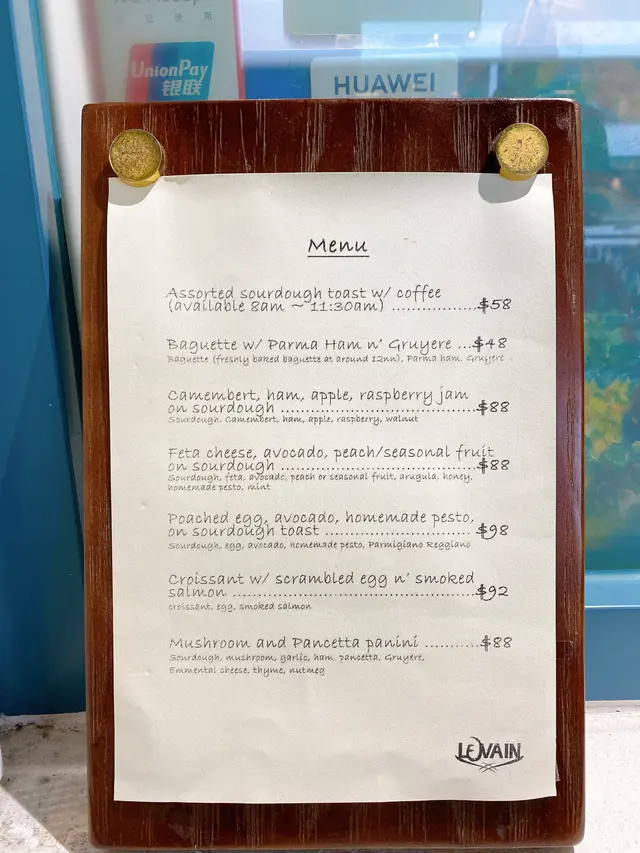 UnionPay
银联
HUAWEI
Menu
Assorted sourdough toast w/ coffee
(available 8am ~ 11:30am) ..................$58
Baguette w/ Parma Ham n' Gruyere ...$48
Baguette (freshly baked baguette at around 12nn), Parma ham, Gruyere
Camembert, ham, apple, raspberry jam
on sourdough ......................................$88
Sourdough, Camembert, ham, apple, raspberry, walnut
Feta cheese, avocado, peach/seasonal fruit
on sourdough ......................................$88
Sourdough, feta, avocado, peach or seasonal fruit, arugula, honey,
homemade pesto, mint
Poached egg, avocado, homemade pesto,
on sourdough toast .............................$98
Sourdough, egg, avocado, homemade pesto, Parmigiano Reggiano
Croissant w/ scrambled egg n' smoked
salmon ...............................................$92
croissant, egg, smoked salmon
Mushroom and Pancetta panini ..........$88
Sourdough, mushroom, garlic, ham, pancetta, Gruyere,
Emmental cheese, thyme, nutmeg
LEVAIN